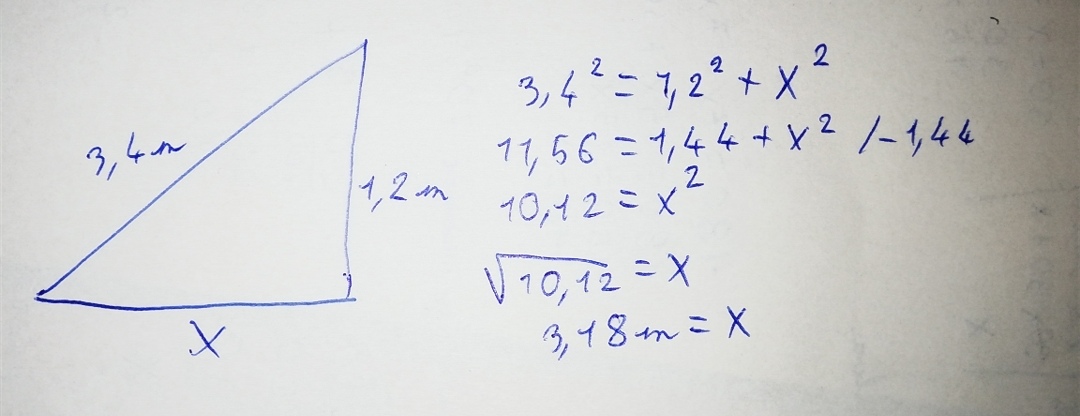 3,4 m
1,2 m
X
3,4² = 1,2² + X²
11,56 = 1,44 + X² /-1,44
10,12 = X²
√10,12 = X
3,18 m = X